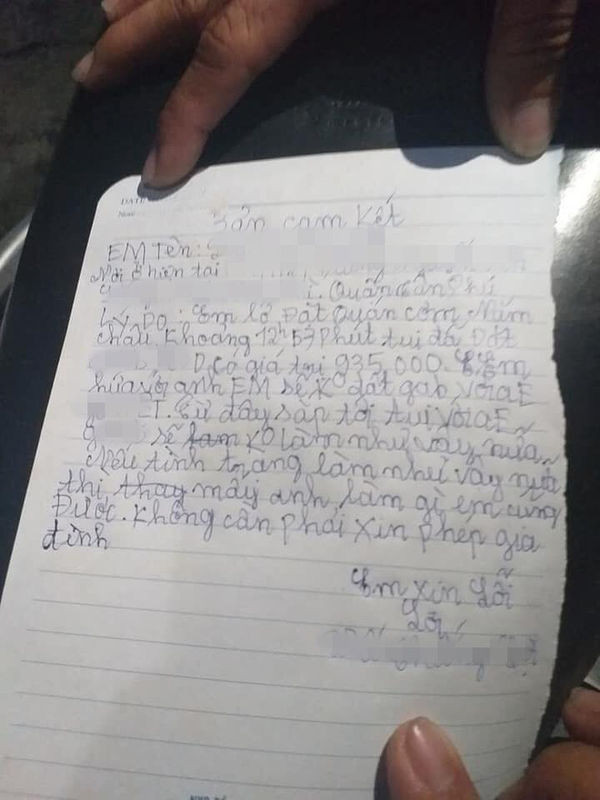 DATE
Bản cam kết
EM Tên:
Nơi ở hiện tại
Quán Tân Phú
Lý Do: Em lở Đặt Quán cơm Năm
châu. Khoảng 12h57 Phút tui đã Đặt
Có giá trị 935.000. Em
hứa với anh EM sẽ Ko đặt gab với aE
T. Từ đây sắp tới tui với aE
sẽ Ko làm như vậy nữa
Nếu tình trạng làm như vậy nữa
thì thay mấy anh làm gì em cũng
Được. Không cần phải xin phép gia
đình
Em xin Lỗi